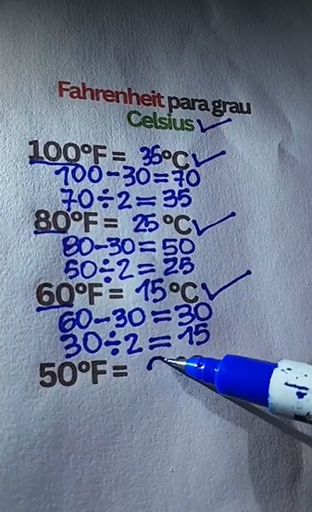 Fahrenheit para grau
Celsius ✓
100°F = 35°C ✓
100-30=70
70÷2=35
80°F = 25°C ✓
80-30=50
50÷2=25
60°F = 15°C ✓
60-30=30
30÷2=15
50°F =